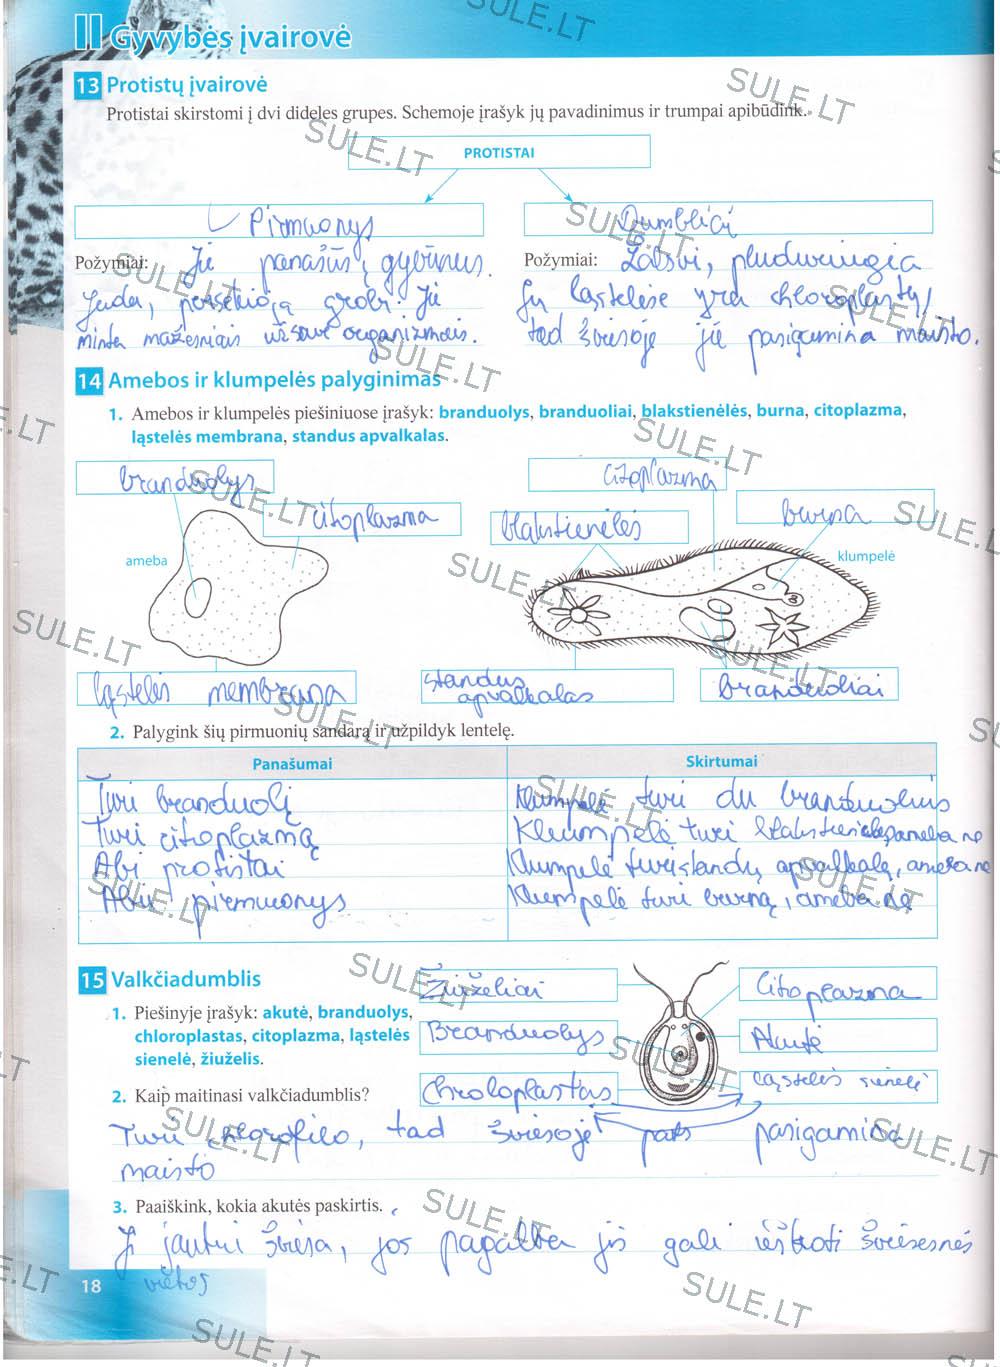 II Gyvybės įvairovė
13 Protistų įvairovė
Protistai skirstomi į dvi dideles grupes. Schemoje įrašyk jų pavadinimus ir trumpai apibūdink.
PROTISTAI
Pirmuonys
Dumbliai
Požymiai: Jie panašūs į gyvūnus.
Juda, persekioja grobį. Jie
minta mažesniais už save organizmais.
Požymiai: Žalsvi, plūduriuoja
Jų ląstelėse yra chloroplastų,
tad šviesoje jie pasigamina maisto.
14 Amebos ir klumpelės palyginimas
1. Amebos ir klumpelės piešiniuose įrašyk: branduolys, branduoliai, blakstienėlės, burna, citoplazma,
ląstelės membrana, standus apvalkalas.
branduolys
citoplazma
citoplazma
blakstienėlės
burna
ameba
klumpelė
ląstelės membrana
standus
apvalkalas
branduoliai
2. Palygink šių pirmuonių sandarą ir užpildyk lentelę.
Panašumai
Skirtumai
Turi branduolį
Turi citoplazmą
Abi protistai
Abu pirmuonys
Klumpelė turi du branduolius
Klumpelė turi blakstienėles, ameba ne
Klumpelė turi standų apvalkalą, ameba ne
Klumpelė turi burną, ameba ne
15 Valkčiadumblis
1. Piešinyje įrašyk: akutė, branduolys,
chloroplastas, citoplazma, ląstelės
sienelė, žiuželis.
Žiuželiai
Branduolys
Chroloplastas
Citoplazma
Akutė
Ląstelės sienelė
2. Kaip maitinasi valkčiadumblis?
Turi chlorofilo, tad šviesoje pats pasigamina
maisto
3. Paaiškink, kokia akutės paskirtis.
Ji jautri šviesa, jos pagalba jis gali ieškoti šviesesnės
vietos
18
SULE.LT